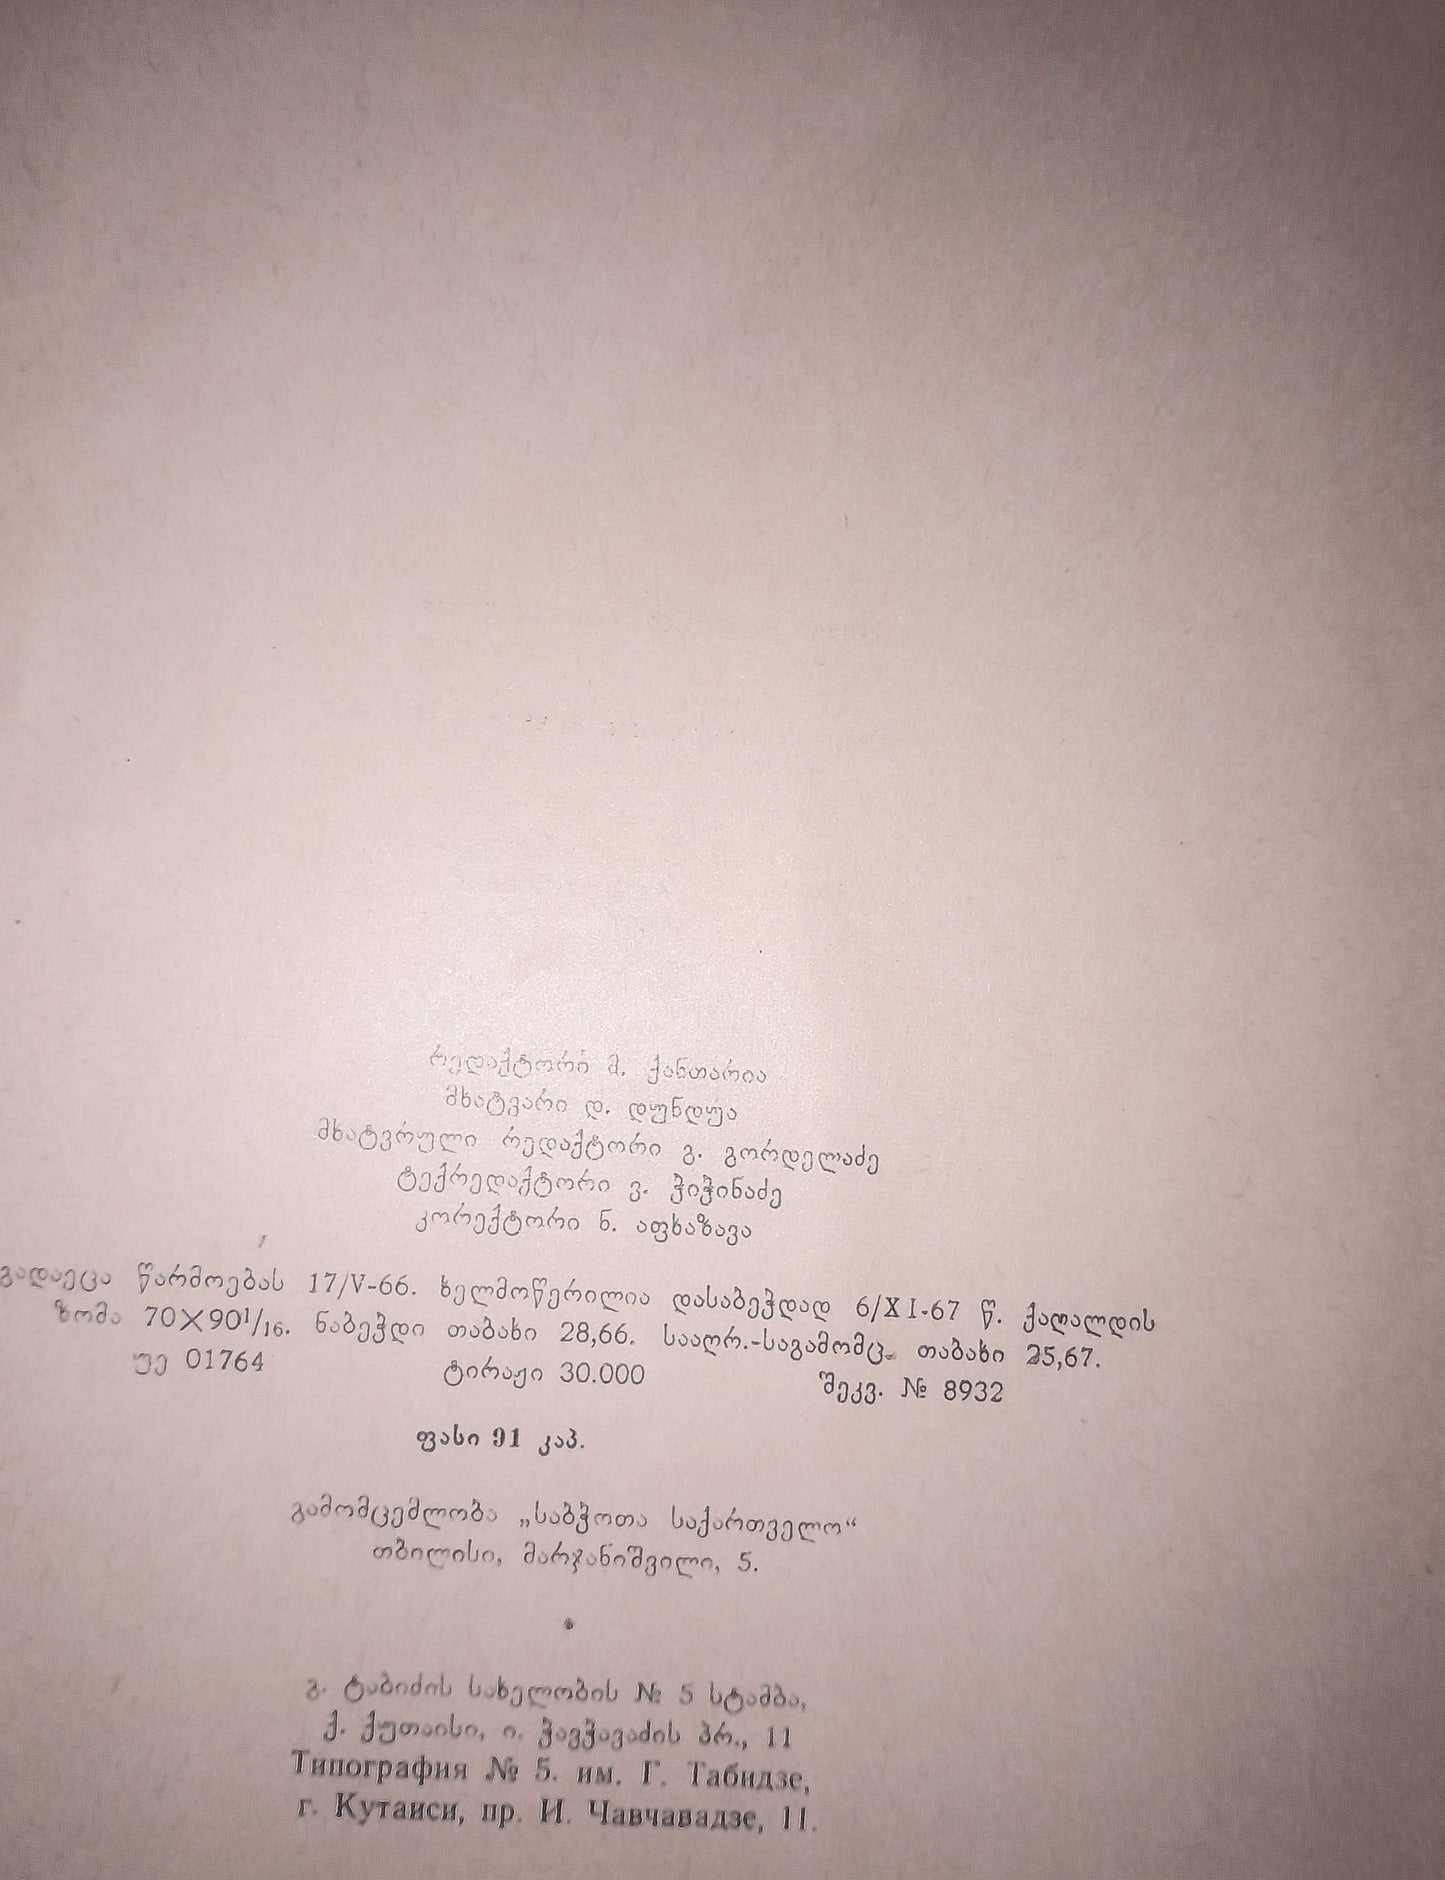 რედაქტორი მ. ქანთარია
მხატვარი დ. დუნდუა
მხატვრული რედაქტორი გ. გორდელაძე
ტექრედაქტორი ვ. ჭიჭინაძე
კორექტორი ნ. აფხაზავა
გადაეცა წარმოებას 17/V-66. ხელმოწერილია დასაბეჭდად 6/XI-67 წ. ქაღალდის
ზომა 70×90¹/₁₆. ნაბეჭდი თაბახი 28,66. სააღრ.-საგამომც. თაბახი 25,67.
უე 01764 ტირაჟი 30.000 შეკვ. № 8932
ფასი 91 კაპ.
გამომცემლობა „საბჭოთა საქართველო“
თბილისი, მარჯანიშვილი, 5.
გ. ტაბიძის სახელობის № 5 სტამბა,
ქ. ქუთაისი, ი. ჭავჭავაძის პრ., 11
Типография № 5. им. Г. Табидзе,
г. Кутаиси, пр. И. Чавчавадзе, 11.